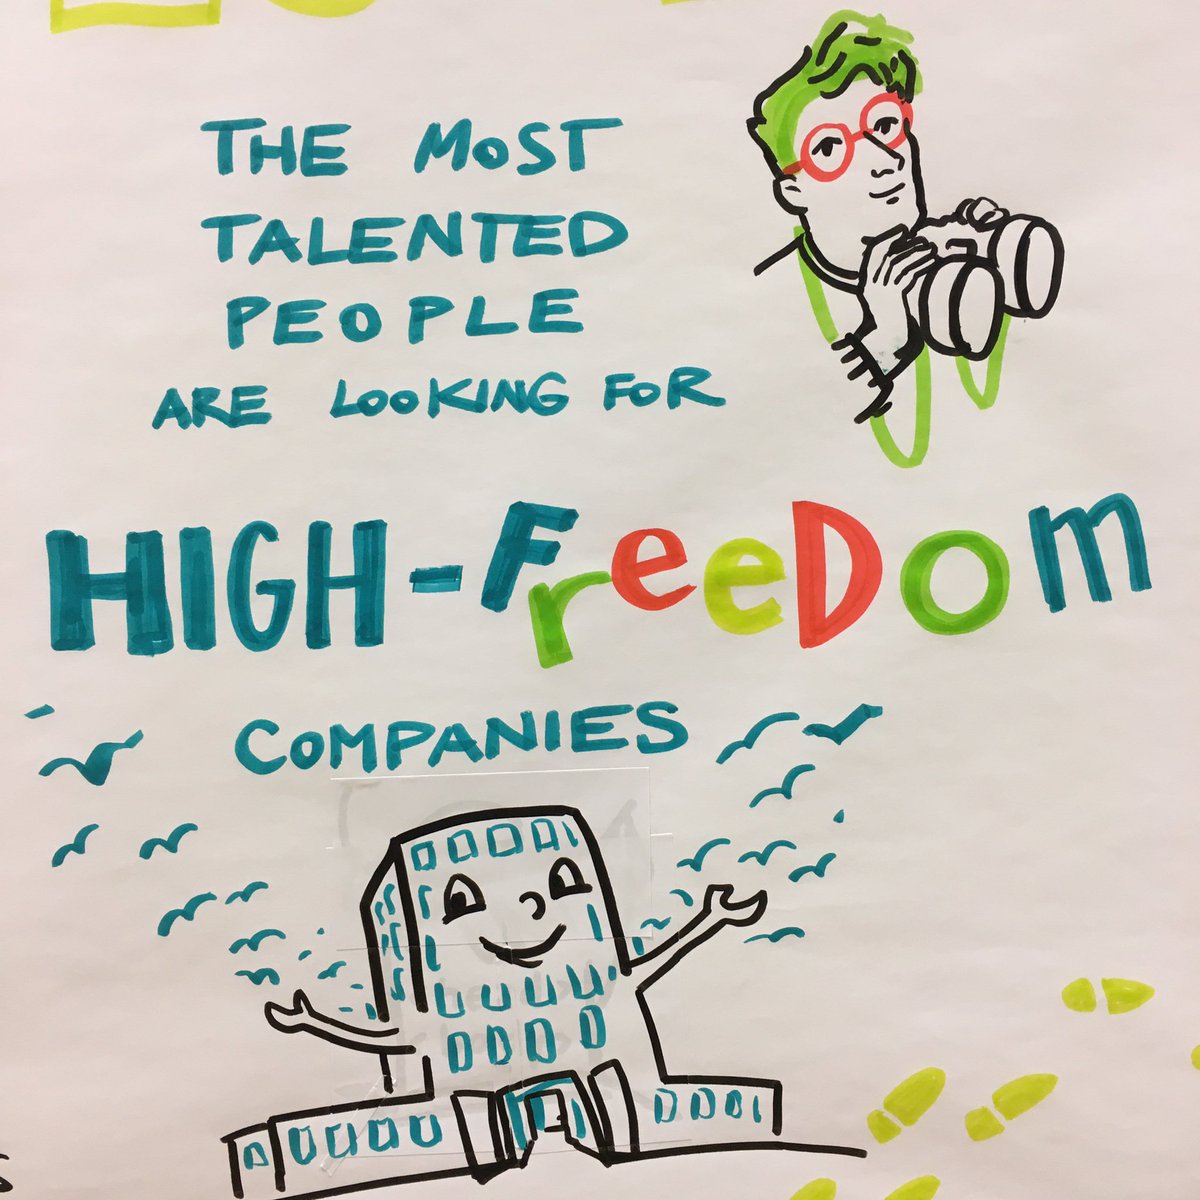 THE MOST
TALENTED
PEOPLE
ARE LOOKING FOR
HIGH-FreeDom
COMPANIES